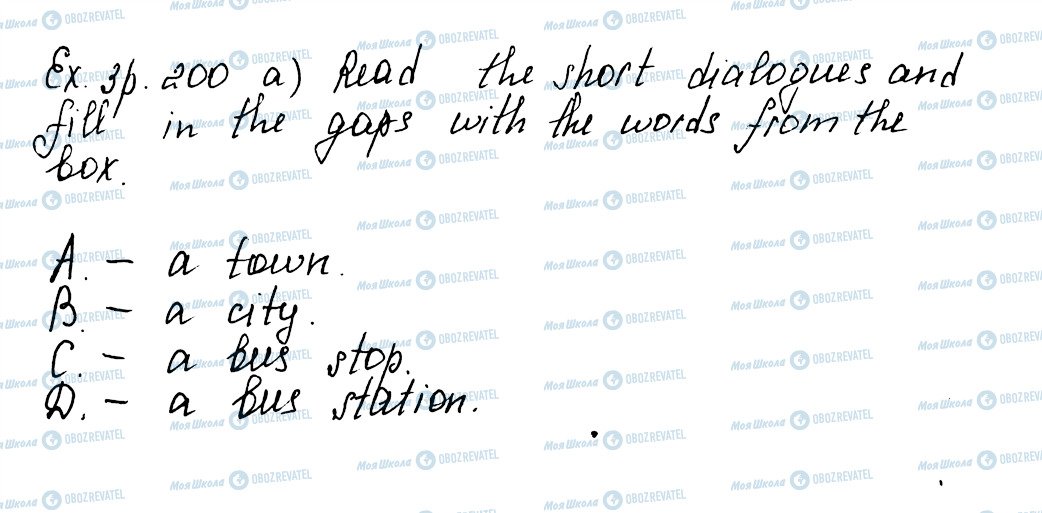 Ex. 3p. 200 a) Read the short dialogues and
fill in the gaps with the words from the
box.
A. - a town.
B. - a city.
C. - a bus stop.
D. - a bus station.